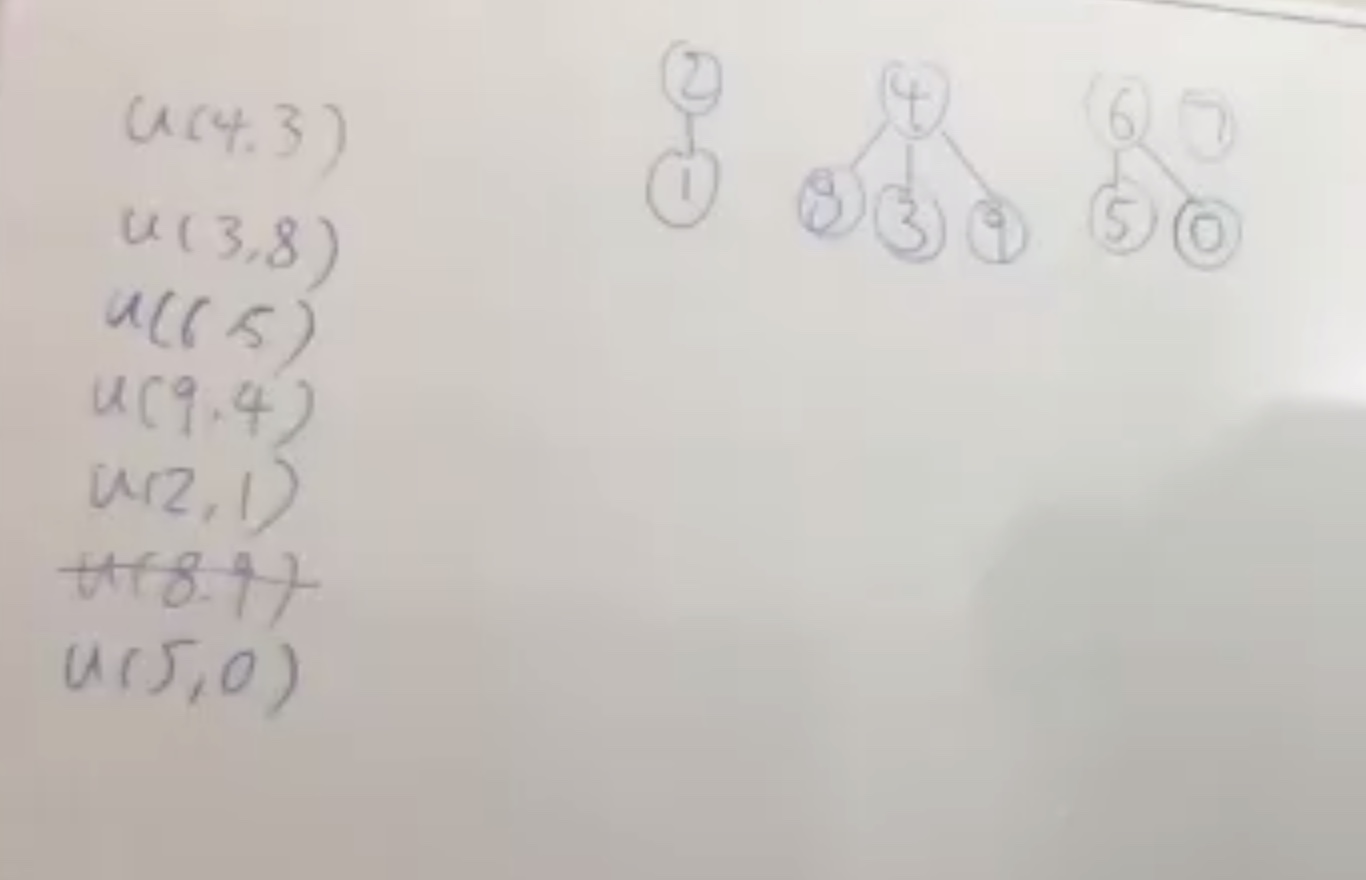 u(4.3)
u(3,8)
u(6 5)
u(9.4)
u(2,1)
u(8.9)
u(5,0)
2
1
4
8 3 9
6 7
5 0